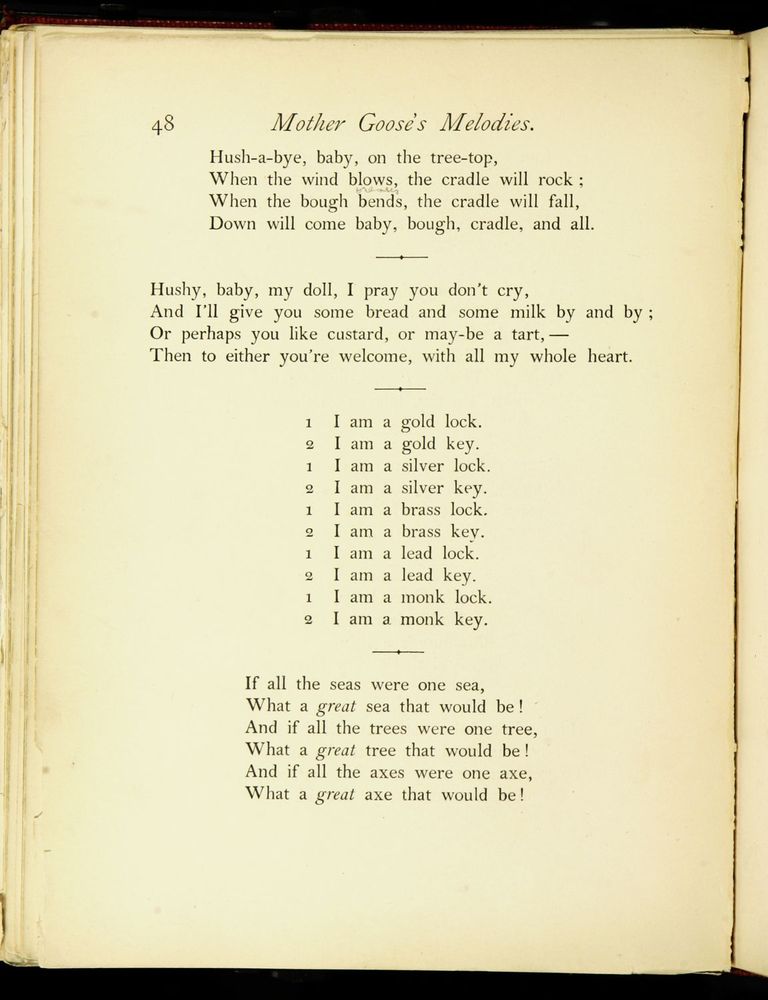 48 Mother Goose's Melodies.
Hush-a-bye, baby, on the tree-top,
When the wind blows, the cradle will rock ;
breaks
When the bough bends, the cradle will fall,
Down will come baby, bough, cradle, and all.
Hushy, baby, my doll, I pray you don't cry,
And I'll give you some bread and some milk by and by ;
Or perhaps you like custard, or may-be a tart, —
Then to either you're welcome, with all my whole heart.
1 I am a gold lock.
2 I am a gold key.
1 I am a silver lock.
2 I am a silver key.
1 I am a brass lock.
2 I am a brass key.
1 I am a lead lock.
2 I am a lead key.
1 I am a monk lock.
2 I am a monk key.
If all the seas were one sea,
What a great sea that would be !
And if all the trees were one tree,
What a great tree that would be !
And if all the axes were one axe,
What a great axe that would be !